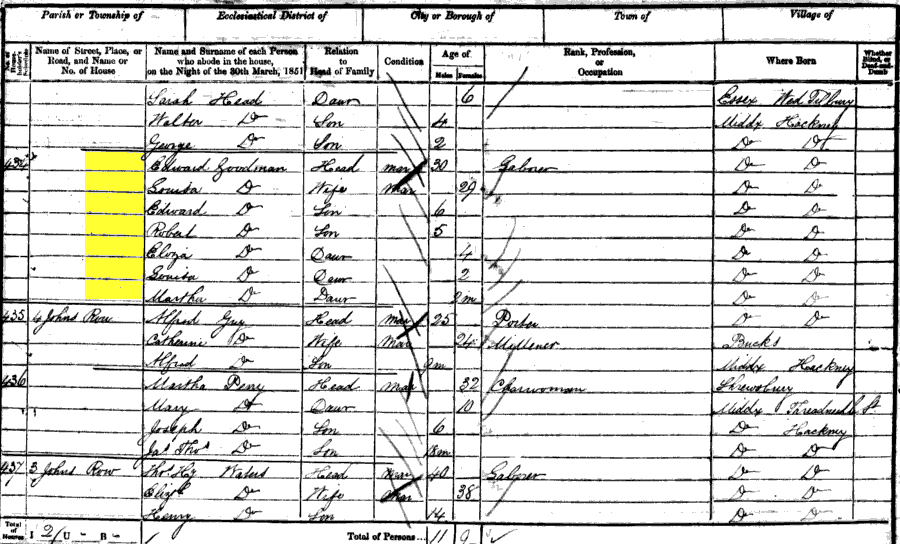 Parish or Township of Ecclesiastical District of City or Borough of Town of Village of
Name of Street, Place, or Road, and Name or No. of House Name and Surname of each Person who abode in the house, on the Night of the 30th March, 1851 Relation to Head of Family Condition Age of Males Females Rank, Profession, or Occupation Where Born Whether Blind, or Deaf-and-Dumb
Sarah Head Daur 6 Essex
Walter Do Son 4 Middx Hackney
George Do Son 2 Do Do
434 Edward Goodman Head Mar 30 Laborer Do Do
Louisa Do Wife Mar 29 Do Do
Edward Do Son 6 Do Do
Robert Do Son 5 Do Do
Eliza Do Daur 4 Do Do
Louisa Do Daur 2 Do Do
Martha Do Daur 2m Do Do
435 4 Johns Row Alfred Guy Head Mar 25 Porter Do Do
Catherine Do Wife Mar 24 Millener Bucks
Alfred Do Son 9m Middx Hackney
436 Martha Peny Head Mar 32 Charwoman Shrewsbury
Mary Do Daur 10 Middx St
Joseph Do Son 6 Do Hackney
Jas Thos Do Son Do Do
437 3 Johns Row Thos Hy Waters Head Mar 40 Laborer Do Do
Elizth Do Wife Mar 38 Do Do
Henry Do Son 14 Do Do
Total of Houses I 2 U - B - Total of Persons ... 11 9